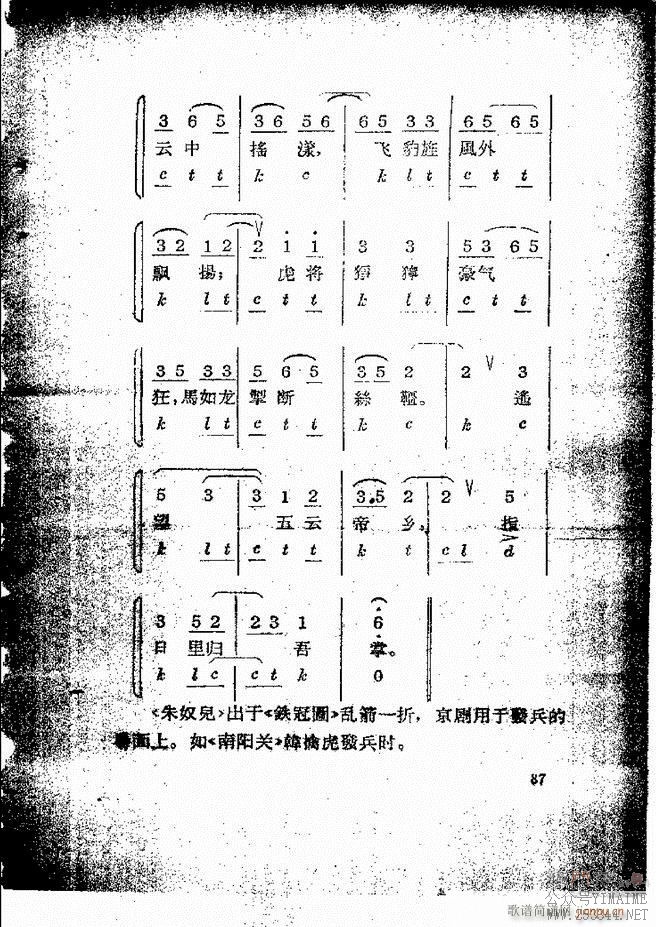 3 6 5 3 6 5 6 6 5 3 3 6 5 6 5
云中 搖漾， 飞豹旌風外
c t t k c k l t c t t
3 2 1 2 2 1 1 3 3 5 3 6 5
飄揚； 虎将 獐獐 豪气
k l t c t t k l t c t t
3 5 3 3 5 6 5 3 5 2 2 V 3
狂，馬如龙掣断 絲韁。 遙
k l t c t t k c k c
5 3 3 1 2 3.5 2 2 V 5
望 五云 帝乡， 指
k l t c t t k t c l d
3 5 2 2 3 1 6
日里归 吾 掌。
k l c c t k 0
《朱奴兒》出于《鉄冠圖》乱箭一折，京剧用于發兵的
場面上。如《南阳关》韓擒虎發兵时。
87
公众号YIMAIME
歌谱简谱网 jianpu.cn